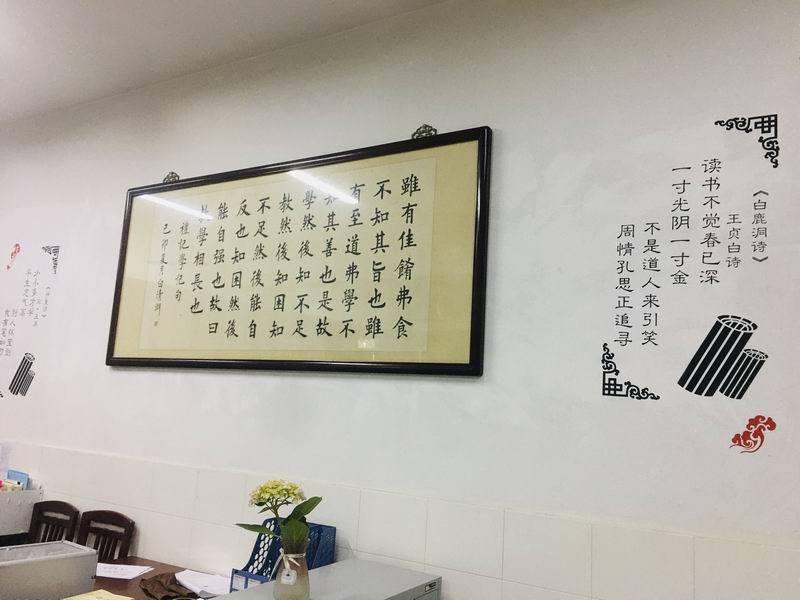 《白鹿洞诗》
王贞白诗
读书不觉春已深
一寸光阴一寸金
不是道人来引笑
周情孔思正追寻
雖有佳餚弗食
不知其旨也雖
有至道弗學不
知其善也是故
學然後知不足
教然後知困知
不足然後能自
反也知困然後
能自强也故曰
教學相長也
禮記學記句
己卯夏月白清
少小多才学
平生志气高
别人怀宝剑
我有笔如刀